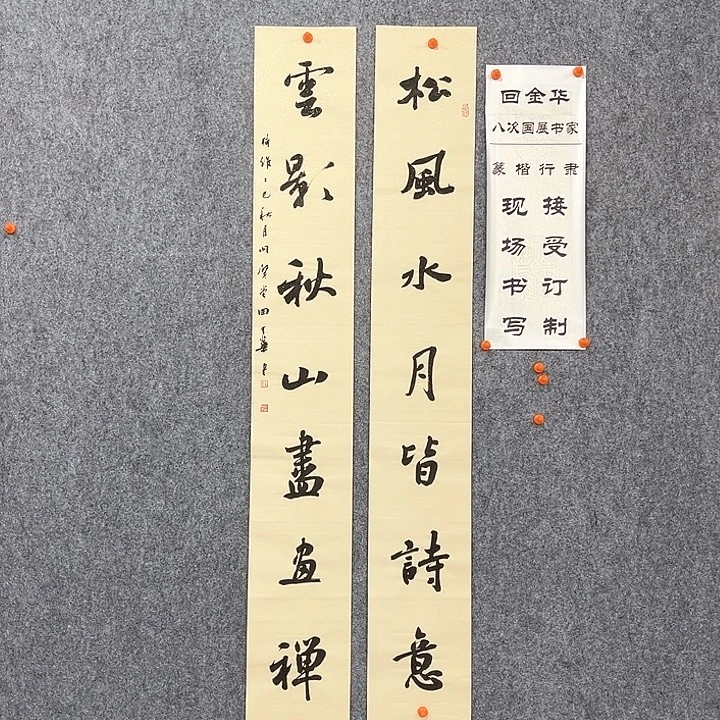 松風水月皆詩意
雲影秋山畫画禅
乙巳秋月
回金华
八次国展书家
篆楷行隶
接受订制
现场书写